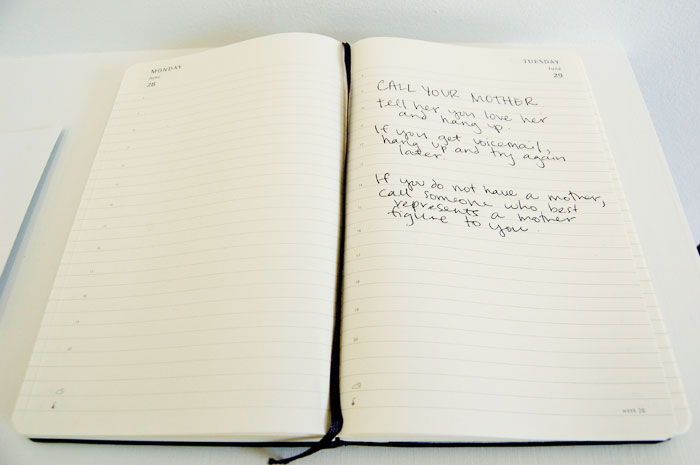 MONDAY
June
28
TUESDAY
June
29
CALL YOUR MOTHER
tell her you love her
and hang up.
If you get voicemail,
hang up and try again
later
If you do not have a mother,
call someone who best
represents a mother
figure to you.
week 26